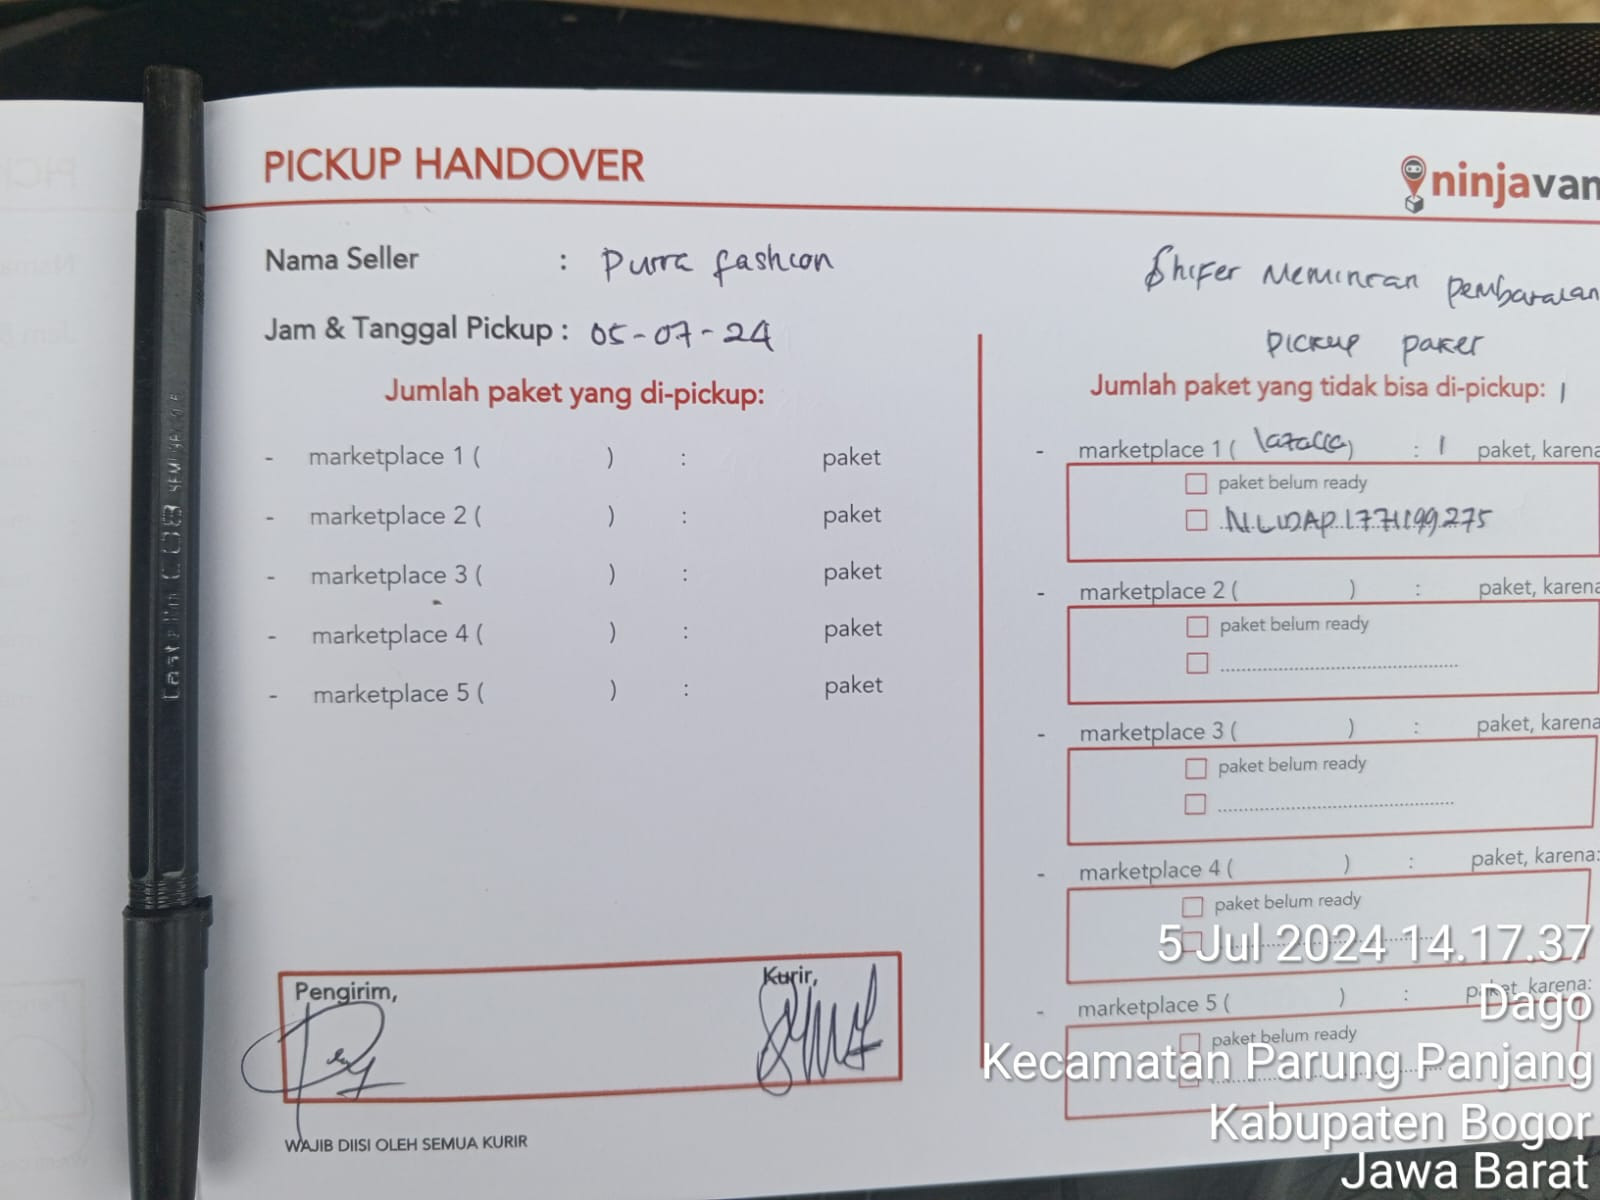 PICKUP HANDOVER
ninjavan
Nama Seller : Purra fashion
Jam & Tanggal Pickup : 05-07-24
Jumlah paket yang di-pickup:
- marketplace 1 ( ) : paket
- marketplace 2 ( ) : paket
- marketplace 3 ( ) : paket
- marketplace 4 ( ) : paket
- marketplace 5 ( ) : paket
Pengirim,
Kurir,
WAJIB DIISI OLEH SEMUA KURIR
Shifer Meminran pembaralan
pickup paker
Jumlah paket yang tidak bisa di-pickup: 1
- marketplace 1 ( lazada ) : 1 paket, karena
paket belum ready
NLIDAP1771199275
- marketplace 2 ( ) : paket, karena
paket belum ready
- marketplace 3 ( ) : paket, karena
paket belum ready
- marketplace 4 ( ) : paket, karena:
paket belum ready
- marketplace 5 ( ) : paket, karena:
paket belum ready
5 Jul 2024 14.17.37
Dago
Kecamatan Parung Panjang
Kabupaten Bogor
Jawa Barat